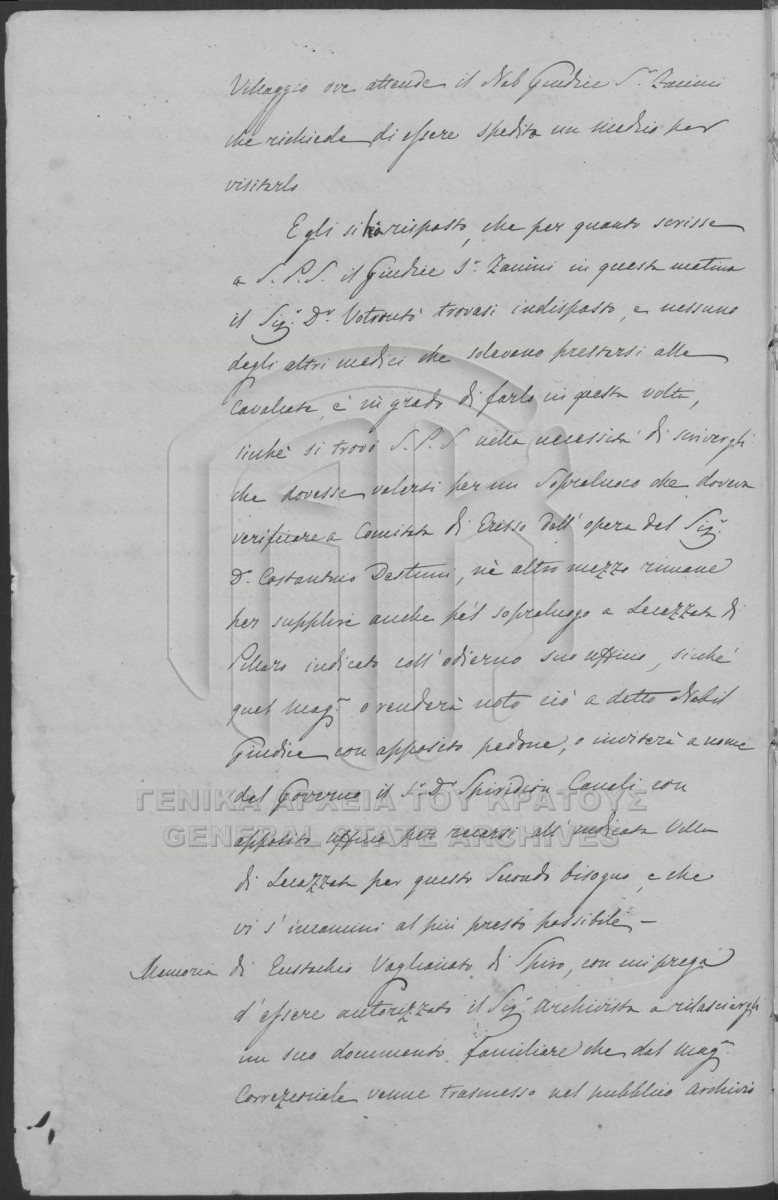 Villaggio ove attende il Nob Giudice Sr. Zanini
che richiede di essere spedito un medico per
visitarlo
Egli si ha risposto, che per quanto scrisse
a S. P. S. il Giudice Sr. Zanini in questa matina
il Sigr. Dr. trovasi indisposto, e nessuno
degli altri medici che solevano prestarsi alle
Cavalcate, è in grado di farlo in questa volta,
sichè si trovò S. P. S. nella necessità di scrivergli
che dovesse valersi per un Sopraluoco che doveva
verificare a Comitata di Erisso dall' opera del Sigr.
Dr. Costantino Destuni, nè altro mezzo rimane
per supplire anche pel sopraluogo a Lecazzata di
Pillaro indicato coll' odierno suo uffizio, sichè
quel magr. o renderà noto ciò a detto Nobil
Giudice con apposito pedone, o inviterà a nome
del Governo il Sr. Dr. Spiridion Cavali con
apposito uffizio per recarsi all' indicata Villa
di Lecazzata per questo secondo bisogno, e che
vi s' incamini al più presto possibile –
Memoria di Eustachio Vaglianato di Spiro, con cui prega
d' essere autorizzato il Sigr. archivista a rilasciargli
un suo documento familiare che dal magr.
Correzionale venne trasmesso nel pubblico archivio
ΓΕΝΙΚΑ ΑΡΧΕΙΑ ΤΟΥ ΚΡΑΤΟΥΣ
GENERAL STATE ARCHIVES